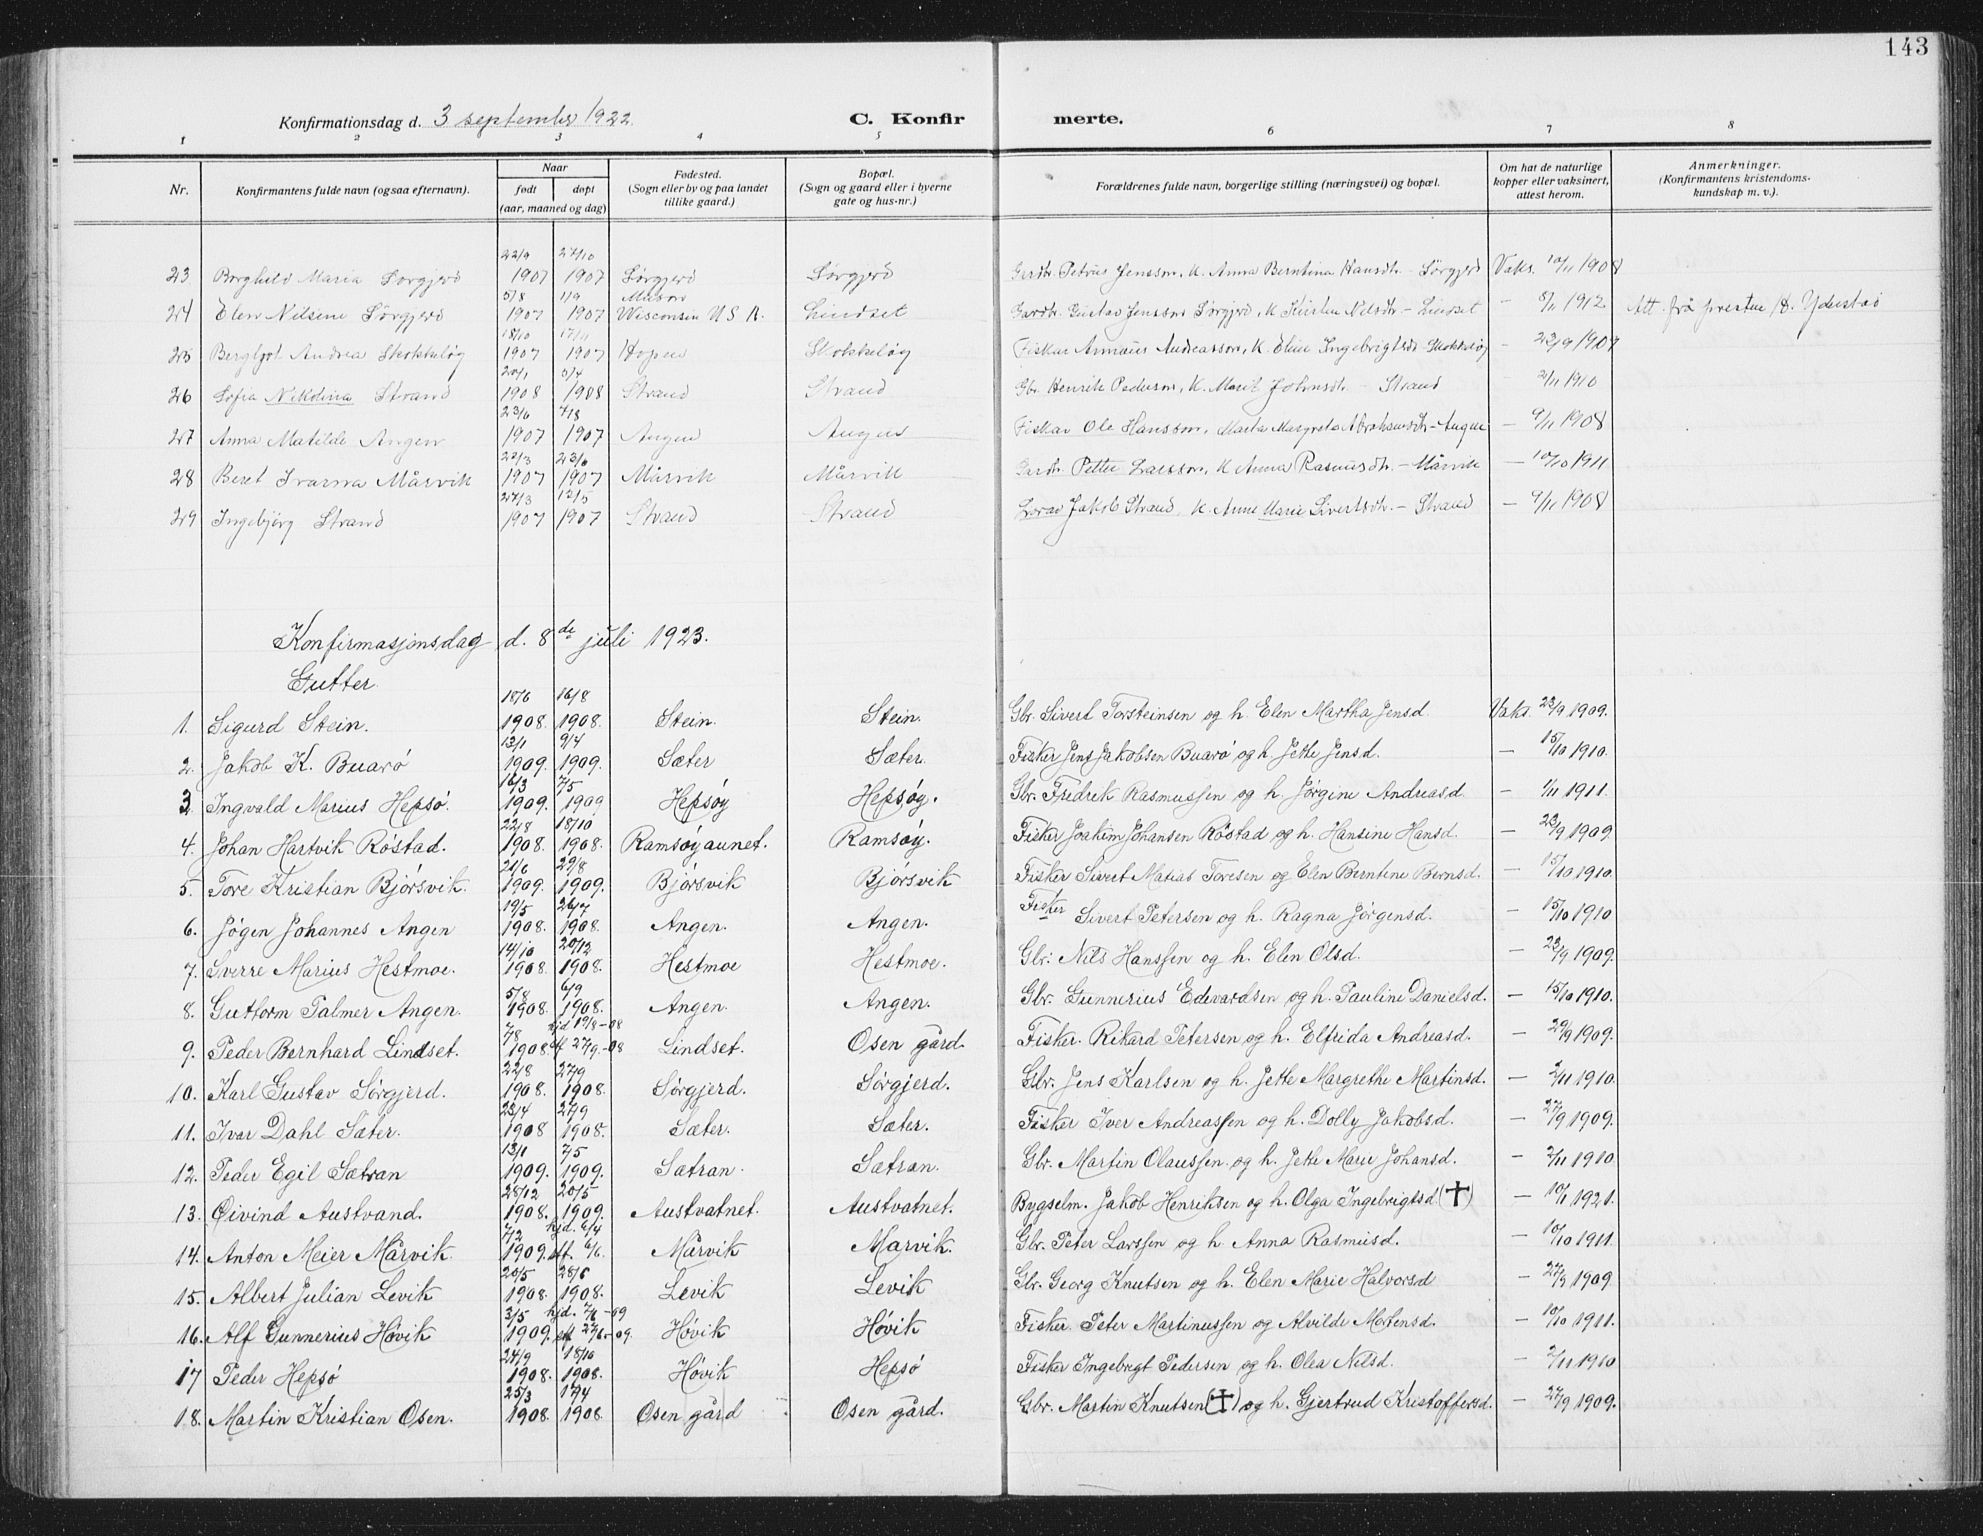 143
Konfirmationsdag d. 3 september 1922. C. Konfirmerte.
1 2 3 4 5 6 7 8
Nr. Konfirmantens fulde navn (ogsaa efternavn). Naar født døpt (aar, maaned og dag) Fødested. (Sogn eller by og paa landet tillike gaard.) Bopæl. (Sogn og gaard eller i byerne gate og hus-nr.) Forældrenes fulde navn, borgerlige stilling (næringsvei) og bopæl. Om hat de naturlige kopper eller vaksinert, attest herom. Anmerkninger. (Konfirmantens kristendomskundskap m. v.).
23 Borghild Maria Sørgjerd 22/9 1907 27/10 1907 Sørgjerd Sørgjerd Gardbr. Petrus Jensson, K. Anna Berntina Hansdtr - Sørgjerd Vaks. 10/11 1908
24 Elen Nilsine Sørgjerd 5/8 1907 1/9 1907 Wisconsin U S A. Lindset Gardbr. Gustav Jensson Sørgjerd, K. Kirsten Nilsdtr. - Lindset - 8/11 1912 Att. frå presten Yderstad
25 Bergljot Andrea Skokkeløy 18/10 1907 17/11 1907 Hopen Skokkeløy Fiskar Annæus Andreasson, K. Eline Ingebrigtsdr. Skokkeløy - 23/9 1909
26 Sofia Nikolina Strand 20/1 1908 5/4 1908 Strand Strand Gbr. Henrik Pederson, K. Marit Johnsdtr - Strand - 2/11 1910
27 Anna Matilde Angen 23/6 1907 7/8 1907 Angen Angen Fiskar Ole Hansson, Marta Margreta Abrahamsdtr - Angen - 9/11 1908
28 Beret Ivarna Mårvik 22/3 1907 23/6 1907 Mårvik Mårvik Gardbr. Petter Larsson, K Anna Rasmusdtr. - Mårvik - 10/10 1911
29 Ingebjørg Strand 27/3 1907 12/5 1907 Strand Strand Jakob Strand, K. Anne Marie Sivertsdtr. - Strand - 9/11 1908
Konfirmasjonsdag d. 8de juli 1923.
Gutter.
1. Sigurd Stein. 18/6 1908. 16/8 1908. Stein. Stein. Gbr. Sivert Torsteinsen og h. Elen Martha Jensd. Vaks. 23/9 1909.
2. Jakob K. Buarø 13/1 1909. 9/4 1909. Sæter Sæter. Fisker Jens Jakobsen Buarø og h. Jette Jensd. - 15/10 1910.
3. Ingvald Marius Hepsø. 16/3 1909. 7/5 1909 Hepsøy Hepsøy. Gbr. Fredrek Rasmussen og h. Jørgine Andreasd. - 1/11 1911.
4. Johan Hartvik Røstad. 22/8 1908. 18/10 1908. Ramsøyaunet. Ramsøy. Fisker Joakim Johansen Røstad og h. Hansine Hansd. - 23/9 1909
5. Tore Kristian Bjørsvik. 21/6 1909. 29/8 1909. Bjørsvik Bjørsvik Fisker Sivert Matias Toresen og Elen Berntine Bernsd. - 15/10 1910.
6. Jøgen Johannes Angen 19/5 1908. 26/7 1908. Angen. Angen. Fisker Sivert Petersen og h. Ragna Jørgensd. - 15/10 1910
7. Sverre Marius Hestmoe. 14/10 1908. 20/12 1908. Hestmoe Hestmoe. Gbr: Nils Hanssen og h. Elen Olsd. - 23/9 1909.
8. Guttorm Palmer Angen. 5/8 1908. 6/9 1908. Angen. Angen. Gbr. Gunnerius Edvardsen og h. Pauline Danielsd. - 15/10 1910.
9. Peder Bernhard Lindset. 7/8 1908. hjd 19/8-08 st 27/9-08 Lindset. Osen gård. Fisker. Rikard Petersen og h. Elfrida Andreasd. - 29/9 1909.
10. Karl Gustav Sørgjerd. 22/8 1908. 27/9 1908. Sørgjerd. Sørgjerd. Gbr. Jens Karlsen og h. Jette Margrethe Martinsd. - 2/11 1910.
11. Ivar Dahl Sæter. 23/4 1908 27/9 1908. Sæter. Sæter. Fisker Iver Andreassen og h. Dolly Jakobsd. - 27/9 1909.
12. Peder Egil Sætran 13/1 1909. 7/5 1909. Sætran. Sætran. Gbr. Martin Olaussen og h. Jette Marie Johansd. - 2/11 1910
13. Øivind Austvand. 28/12 1908. 20/5 1909. Austvatnet. Austvatnet. Bygselm. Jakob Henriksen og h. Olga Ingebrigtsd (✝) - 10/1 1921.
14. Anton Meier Mårvik. 7/2 1909. hjd. 6/4 st. 6/6. Mårvik Marvik. Gbr. Peter Larssen og h. Anna Rasmusd. - 10/10 1911.
15. Albert Julian Levik 20/5 1908. 28/6 1908. Levik Levik Gbr. Georg Knutsen og h. Elen Marie Halvorsd - 27/9 1909
16. Alf Gunnerius Høvik 3/5 1909. hjd. 7/6-09 st 27/6-09. Høvik Høvik Fisker. Peter Martinussen og Alvilde Motensd. - 10/10 1911.
17 Peder Hepsø 24/9 1908. 18/10 1908. Høvik Hepsø Fisker Ingebrigt Pedersen og h. Olea Nilsd. - 2/11 1910
18. Martin Kristian Osen. 25/3 1908. 17/4 1908. Osen gård Osen gård. Gbr. Martin Knutsen (✝) og h. Gjertrud Kristoffersd. - 27/9 1909.